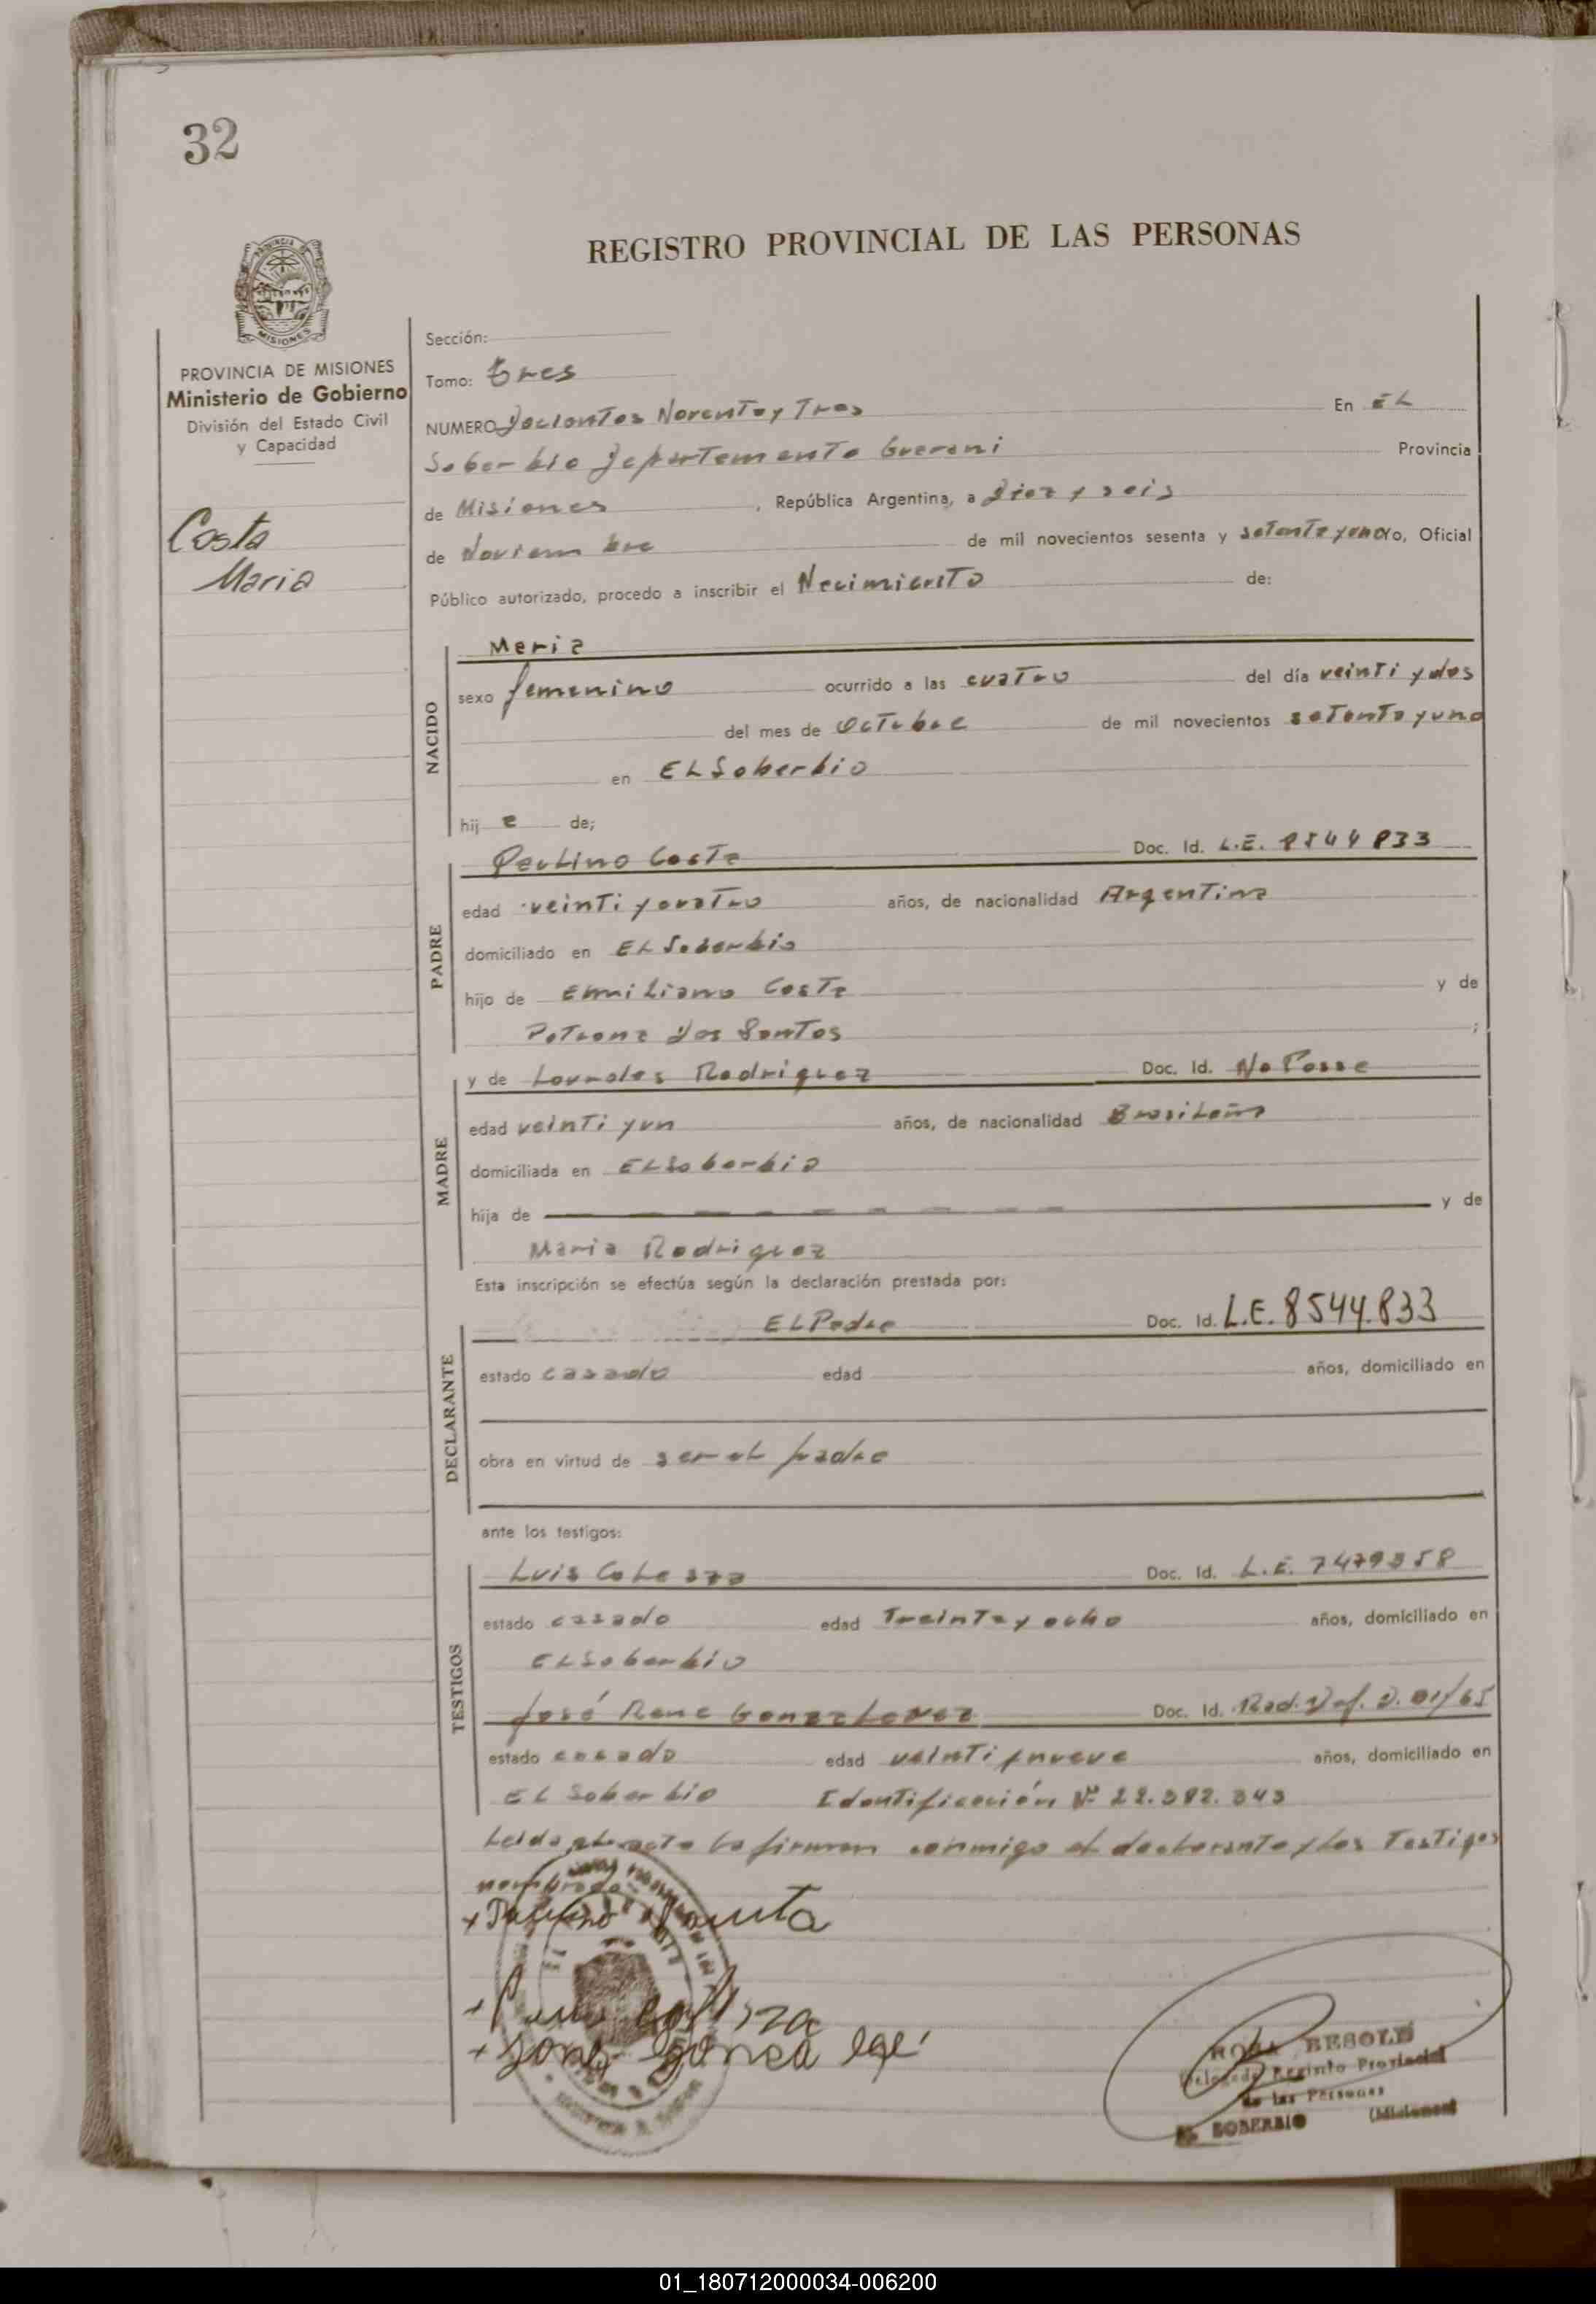 32
REGISTRO PROVINCIAL DE LAS PERSONAS
MISIONES
PROVINCIA DE MISIONES
Ministerio de Gobierno
División del Estado Civil
y Capacidad
Costa
Maria
Sección:
Tomo: tres
NUMERO Docientos Noventa y Tres En EL
Soberbio Departamento Guarani Provincia
de Misiones, República Argentina, a Diez y seis
de Noviembre de mil novecientos sesenta y setenta y uno, Oficial
Público autorizado, procedo a inscribir el Nacimiento de:
NACIDO
Maria
sexo femenino ocurrido a las cuatro del día veinti y dos
del mes de Octubre de mil novecientos setenta y uno
en EL Soberbio
hij a de;
PADRE
Paulino Costa Doc. Id. L.E. 8544833
edad veinti y cuatro años, de nacionalidad Argentina
domiciliado en EL Soberbio
hijo de Emiliano Costa y de
Petrona Dos Santos ;
MADRE
y de Lourdes Rodriguez Doc. Id. No Posse
edad veinti y un años, de nacionalidad Brasileña
domiciliada en EL Soberbio
hija de y de
Maria Rodriguez
Esta inscripción se efectúa según la declaración prestada por:
DECLARANTE
EL Padre Doc. Id. L.E. 8544.833
estado casado edad años, domiciliado en
obra en virtud de ser el padre
ante los testigos:
TESTIGOS
Luis Doc. Id. L.E. 7479358
estado casado edad Treinta y ocho años, domiciliado en
EL Soberbio
José Rene Doc. Id. Rad. Def. D. 01/65
estado casado edad veinti y nueve años, domiciliado en
EL Soberbio Identificación Nº 22.382.343
Leida el acta la firman conmigo el declarante y los Testigos
nombrados
ROSA BESOLD
Delegada Registro Provincial
de las Personas
EL SOBERBIO (Misiones)
01_180712000034-006200